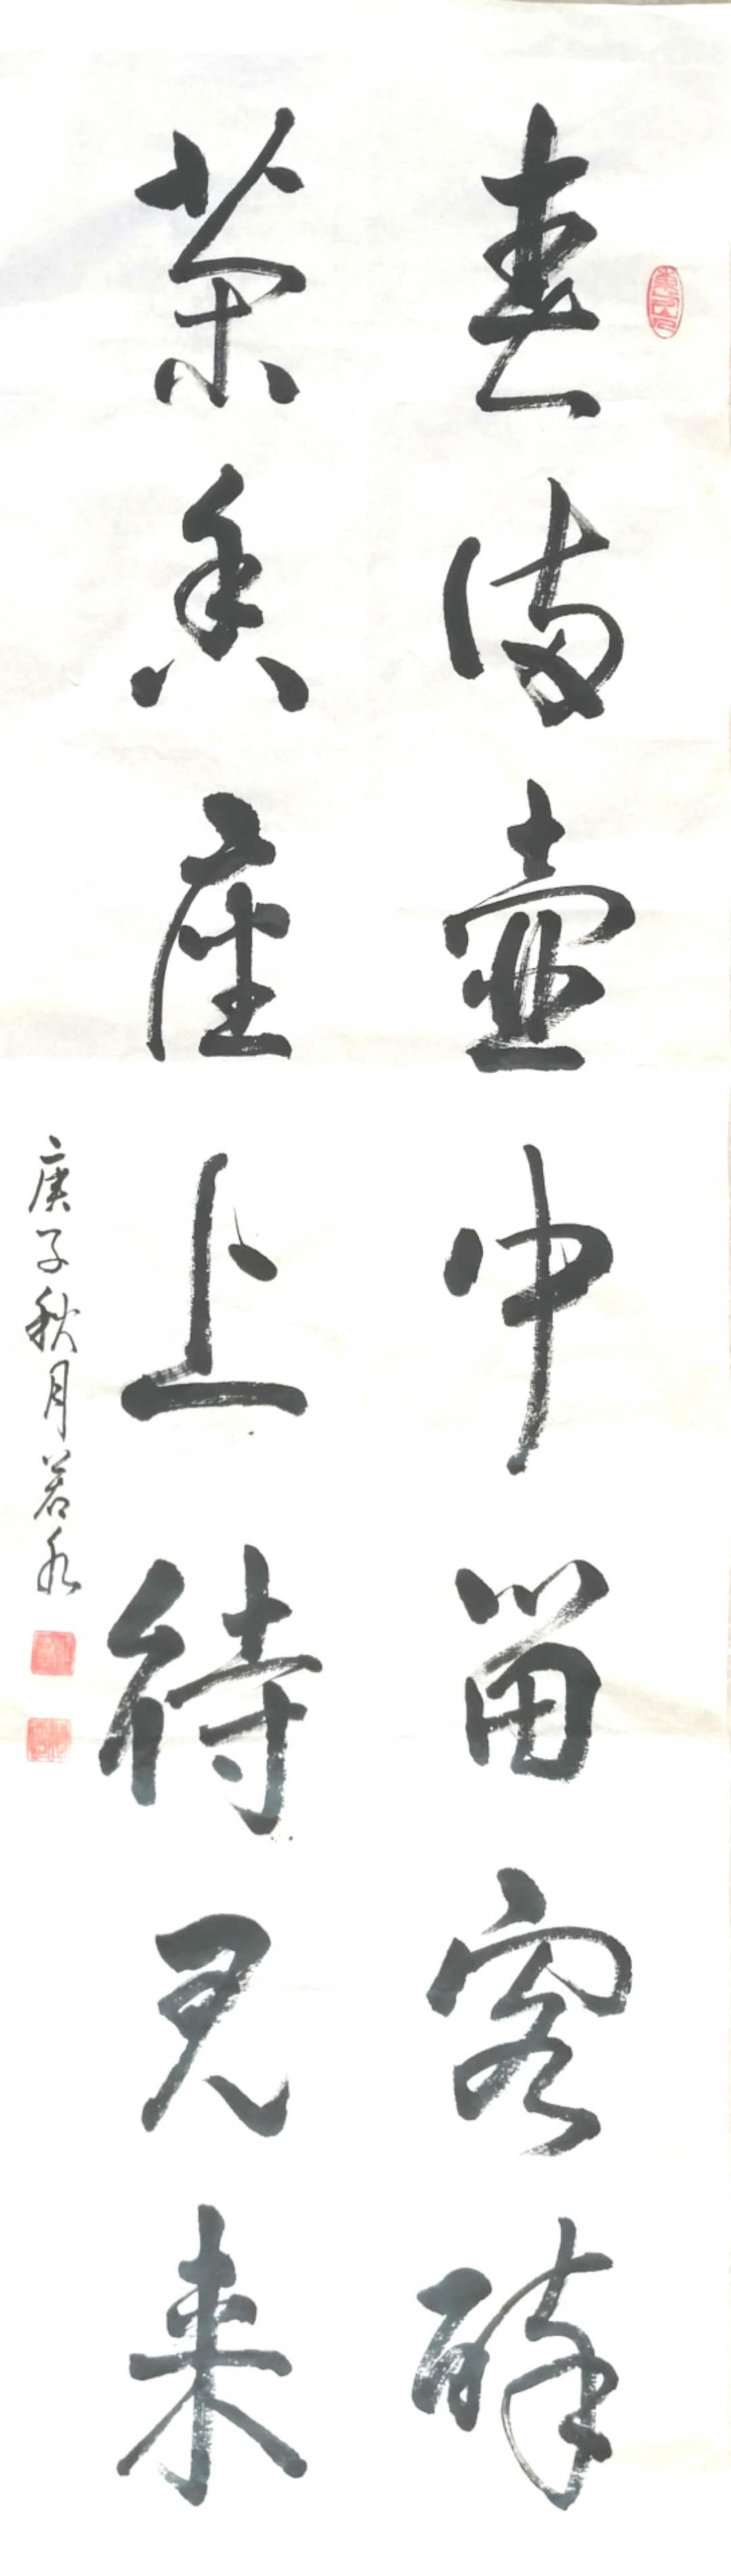 春满壺中留客醉
茶香座上待君来
庚子秋月若水